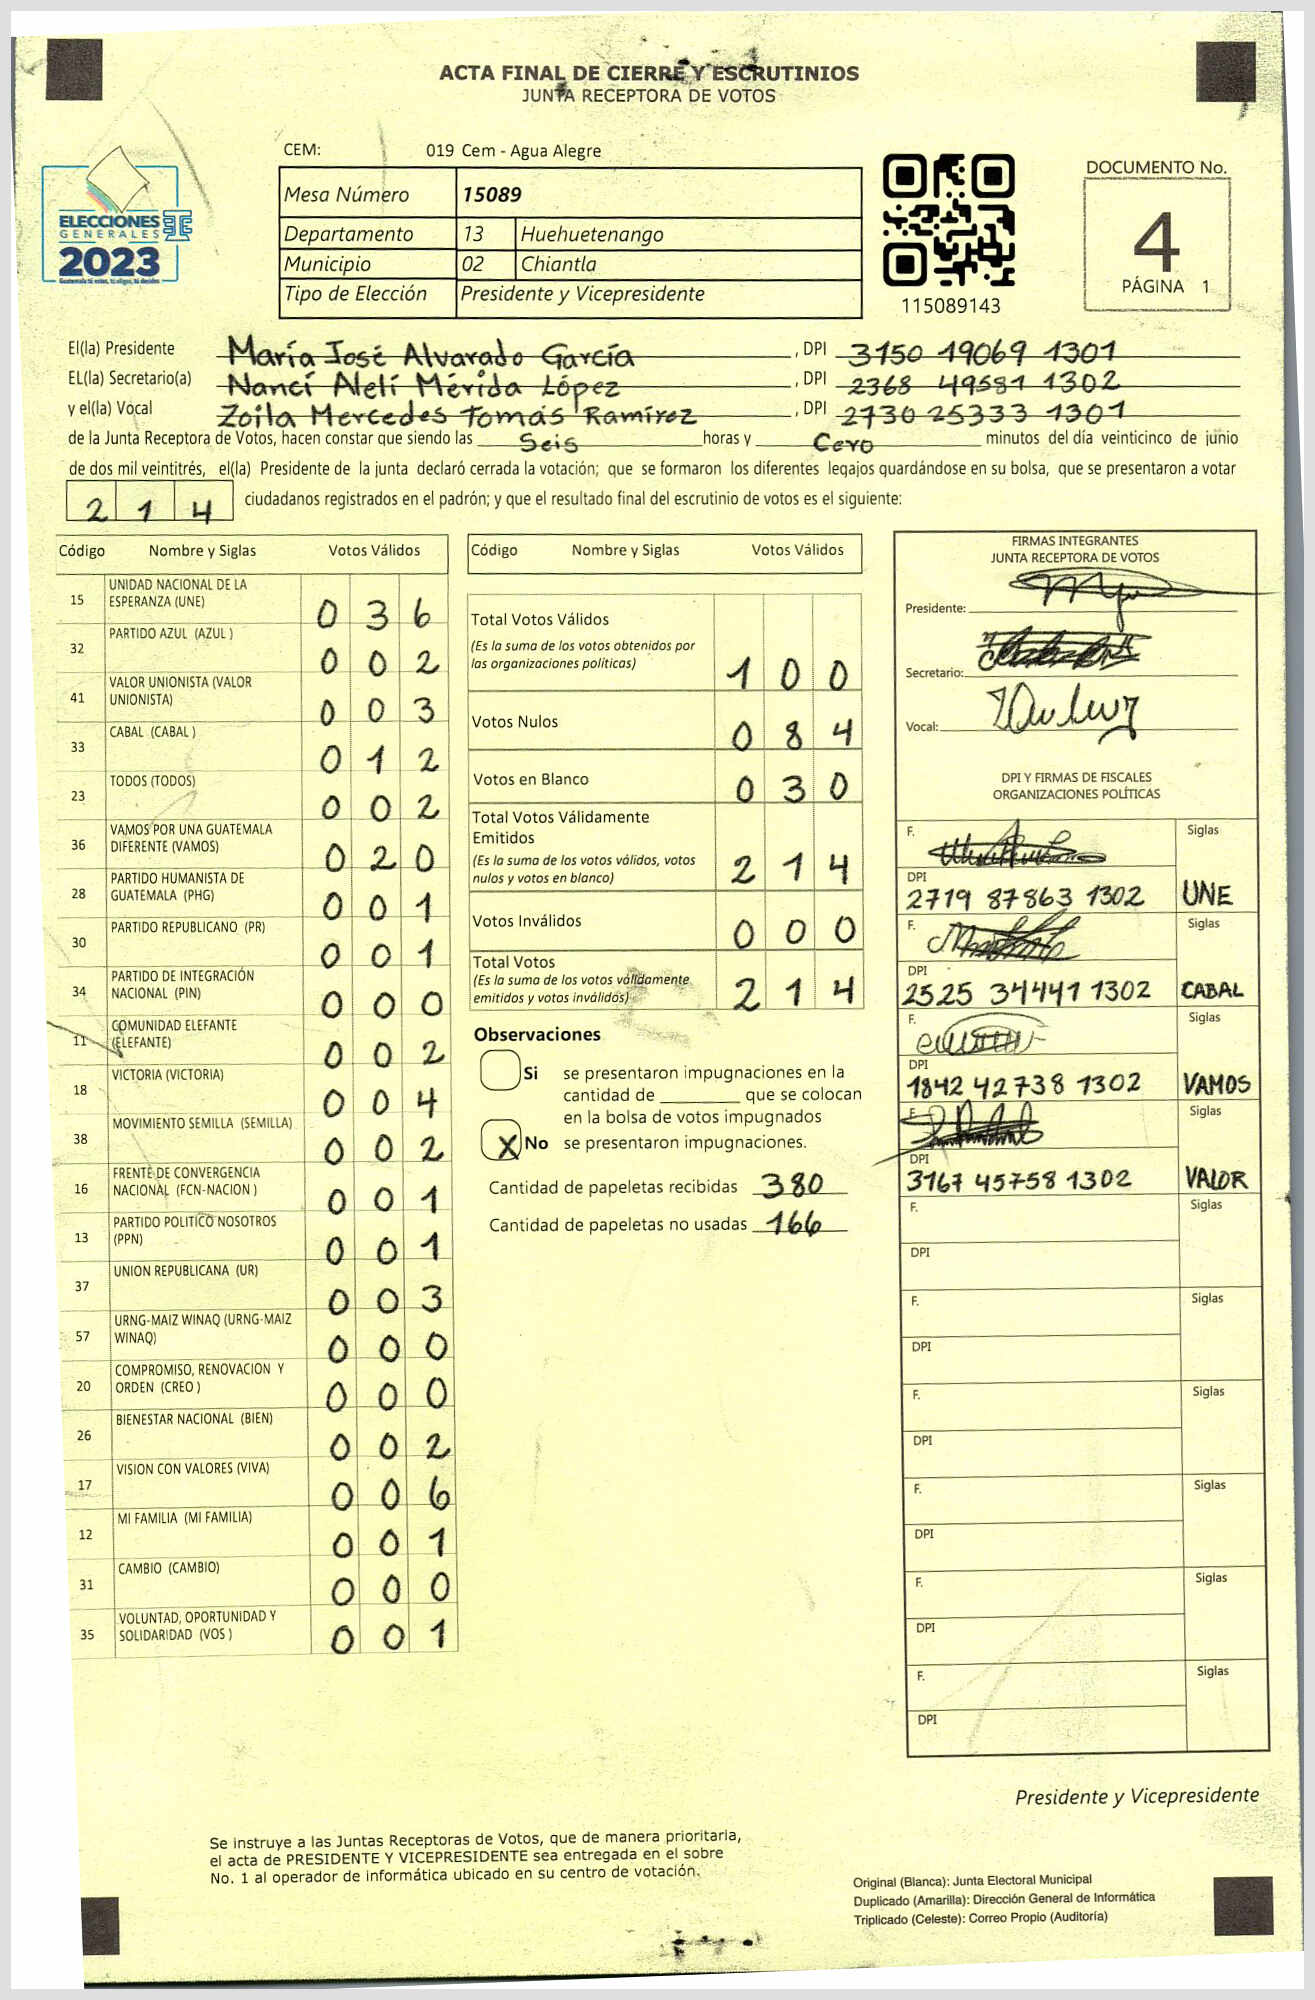 ACTA FINAL DE CIERRE Y ESCRUTINIOS
JUNTA RECEPTORA DE VOTOS
ELECCIONES
GENERALES
2023
Guatemala tú votas, tú eliges, tú decides
CEM: 019 Cem - Agua Alegre
Mesa Número 15089
Departamento 13 Huehuetenango
Municipio 02 Chiantla
Tipo de Elección Presidente y Vicepresidente
115089143
DOCUMENTO No.
4
PÁGINA 1
El(la) Presidente María José Alvarado García , DPI 3150 19069 1301
EL(la) Secretario(a) Nancí Alelí Mérida López , DPI 2368 49581 1302
y el(la) Vocal Zoila Mercedes Tomás Ramírez , DPI 2730 25333 1301
de la Junta Receptora de Votos, hacen constar que siendo las Seis horas y Cero minutos del día veinticinco de junio
de dos mil veintitrés, el(la) Presidente de la junta declaró cerrada la votación; que se formaron los diferentes legajos quardándose en su bolsa, que se presentaron a votar
2 1 4 ciudadanos registrados en el padrón; y que el resultado final del escrutinio de votos es el siguiente:
Código Nombre y Siglas Votos Válidos
15 UNIDAD NACIONAL DE LA
ESPERANZA (UNE) 0 3 6
32 PARTIDO AZUL (AZUL ) 0 0 2
41 VALOR UNIONISTA (VALOR
UNIONISTA) 0 0 3
33 CABAL (CABAL ) 0 1 2
23 TODOS (TODOS) 0 0 2
36 VAMOS POR UNA GUATEMALA
DIFERENTE (VAMOS) 0 2 0
28 PARTIDO HUMANISTA DE
GUATEMALA (PHG) 0 0 1
30 PARTIDO REPUBLICANO (PR) 0 0 1
34 PARTIDO DE INTEGRACIÓN
NACIONAL (PIN) 0 0 0
11 COMUNIDAD ELEFANTE
(ELEFANTE) 0 0 2
18 VICTORIA (VICTORIA) 0 0 4
38 MOVIMIENTO SEMILLA (SEMILLA) 0 0 2
16 FRENTE DE CONVERGENCIA
NACIONAL (FCN-NACION ) 0 0 1
13 PARTIDO POLITICO NOSOTROS
(PPN) 0 0 1
37 UNION REPUBLICANA (UR) 0 0 3
57 URNG-MAIZ WINAQ (URNG-MAIZ
WINAQ) 0 0 0
20 COMPROMISO, RENOVACION Y
ORDEN (CREO ) 0 0 0
26 BIENESTAR NACIONAL (BIEN) 0 0 2
17 VISION CON VALORES (VIVA) 0 0 6
12 MI FAMILIA (MI FAMILIA) 0 0 1
31 CAMBIO (CAMBIO) 0 0 0
35 VOLUNTAD, OPORTUNIDAD Y
SOLIDARIDAD (VOS ) 0 0 1
Código Nombre y Siglas Votos Válidos
Total Votos Válidos
(Es la suma de los votos obtenidos por
las organizaciones políticas) 1 0 0
Votos Nulos 0 8 4
Votos en Blanco 0 3 0
Total Votos Válidamente
Emitidos
(Es la suma de los votos válidos, votos
nulos y votos en blanco) 2 1 4
Votos Inválidos 0 0 0
Total Votos
(Es la suma de los votos válidamente
emitidos y votos inválidos) 2 1 4
Observaciones
Si se presentaron impugnaciones en la
cantidad de ________ que se colocan
en la bolsa de votos impugnados
X No se presentaron impugnaciones.
Cantidad de papeletas recibidas 380
Cantidad de papeletas no usadas 166
FIRMAS INTEGRANTES
JUNTA RECEPTORA DE VOTOS
Presidente:
Secretario:
Vocal:
DPI Y FIRMAS DE FISCALES
ORGANIZACIONES POLÍTICAS
F. Siglas
DPI
2719 87863 1302 UNE
F. Siglas
DPI
2525 34441 1302 CABAL
F. Siglas
DPI
1842 42738 1302 VAMOS
F. Siglas
DPI
3167 45758 1302 VALOR
F. Siglas
DPI
F. Siglas
DPI
F. Siglas
DPI
F. Siglas
DPI
F. Siglas
DPI
F. Siglas
DPI
Presidente y Vicepresidente
Se instruye a las Juntas Receptoras de Votos, que de manera prioritaria,
el acta de PRESIDENTE Y VICEPRESIDENTE sea entregada en el sobre
No. 1 al operador de informática ubicado en su centro de votación.
Original (Blanca): Junta Electoral Municipal
Duplicado (Amarilla): Dirección General de Informática
Triplicado (Celeste): Correo Propio (Auditoría)